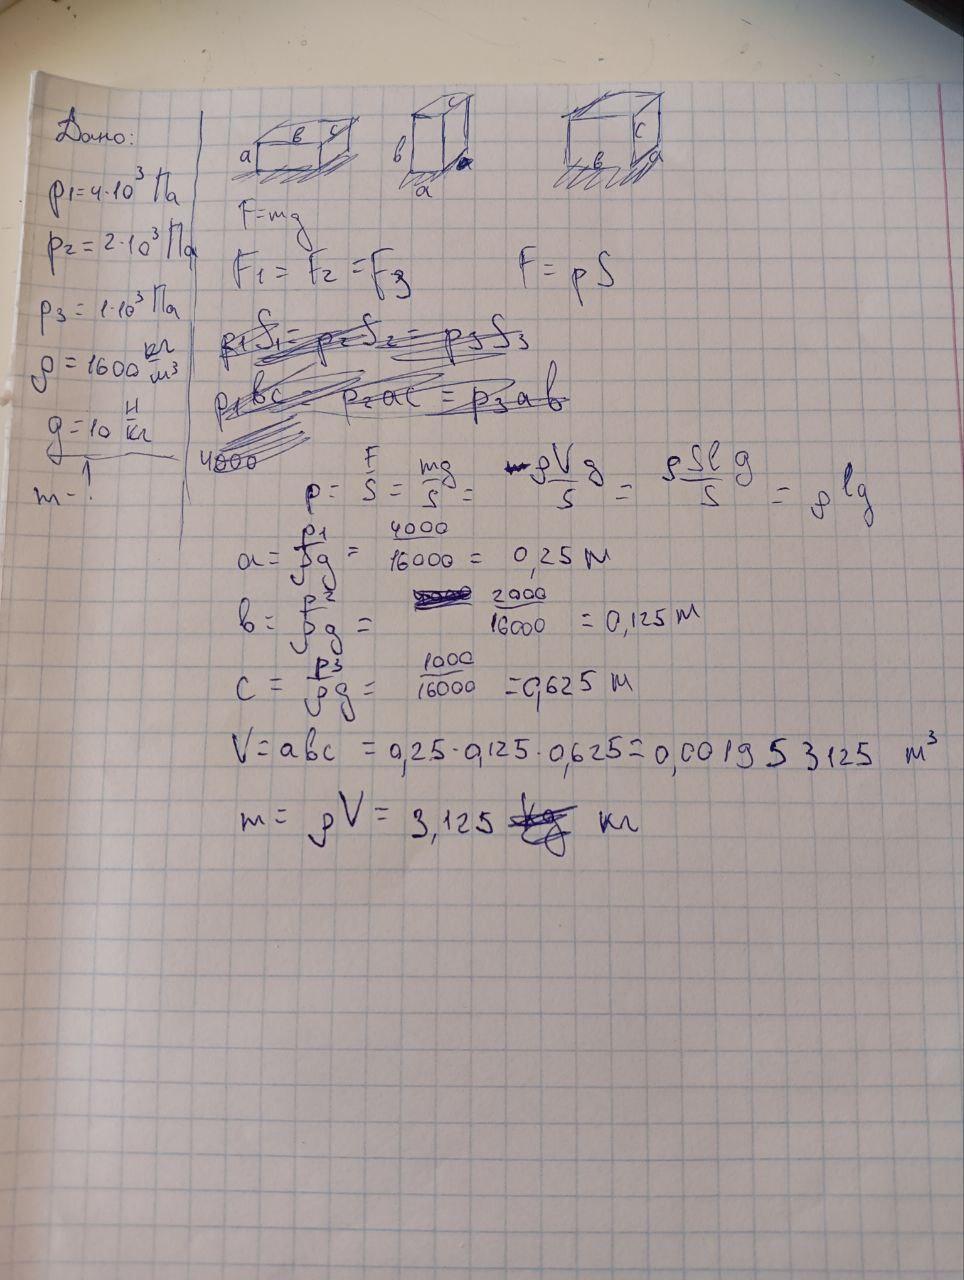 Дано:
p1=4·10³ Па
p2=2·10³ Па
p3=1·10³ Па
ρ=1600 кг/м³
g=10 Н/кг
m-?
a в c
в c a a
c в a
F=mg
F1=F2=F3 F=pS
p1S1=p2S2=p3S3
p1вc=p2ac=p3aв
4000
p=F/S=mg/S=ρVg/S=ρSlg/S=ρlg
a=p1/ρg=4000/16000=0,25 м
в=p2/ρg=2000/16000=0,125 м
c=p3/ρg=1000/16000=0,625 м
V=aвc=0,25·0,125·0,625=0,001953125 м³
m=ρV=3,125 kg кг